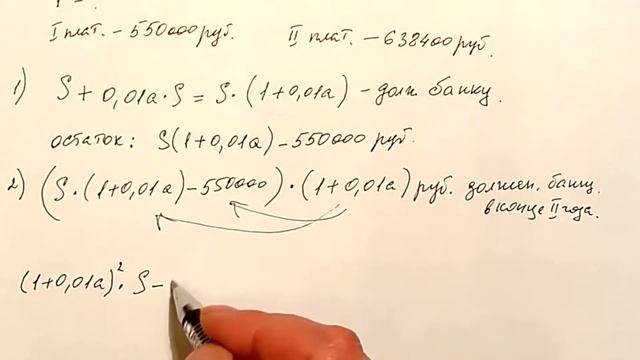 I плат. – 550000 руб. II плат. – 638400 руб.
1) S + 0,01a · S = S · (1+0,01a) – долг банку.
остаток: S(1+0,01a) – 550000 руб.
2) (S · (1+0,01a) – 550000) · (1+0,01a) руб. должен банку
в конце II года.
(1+0,01a)² · S –